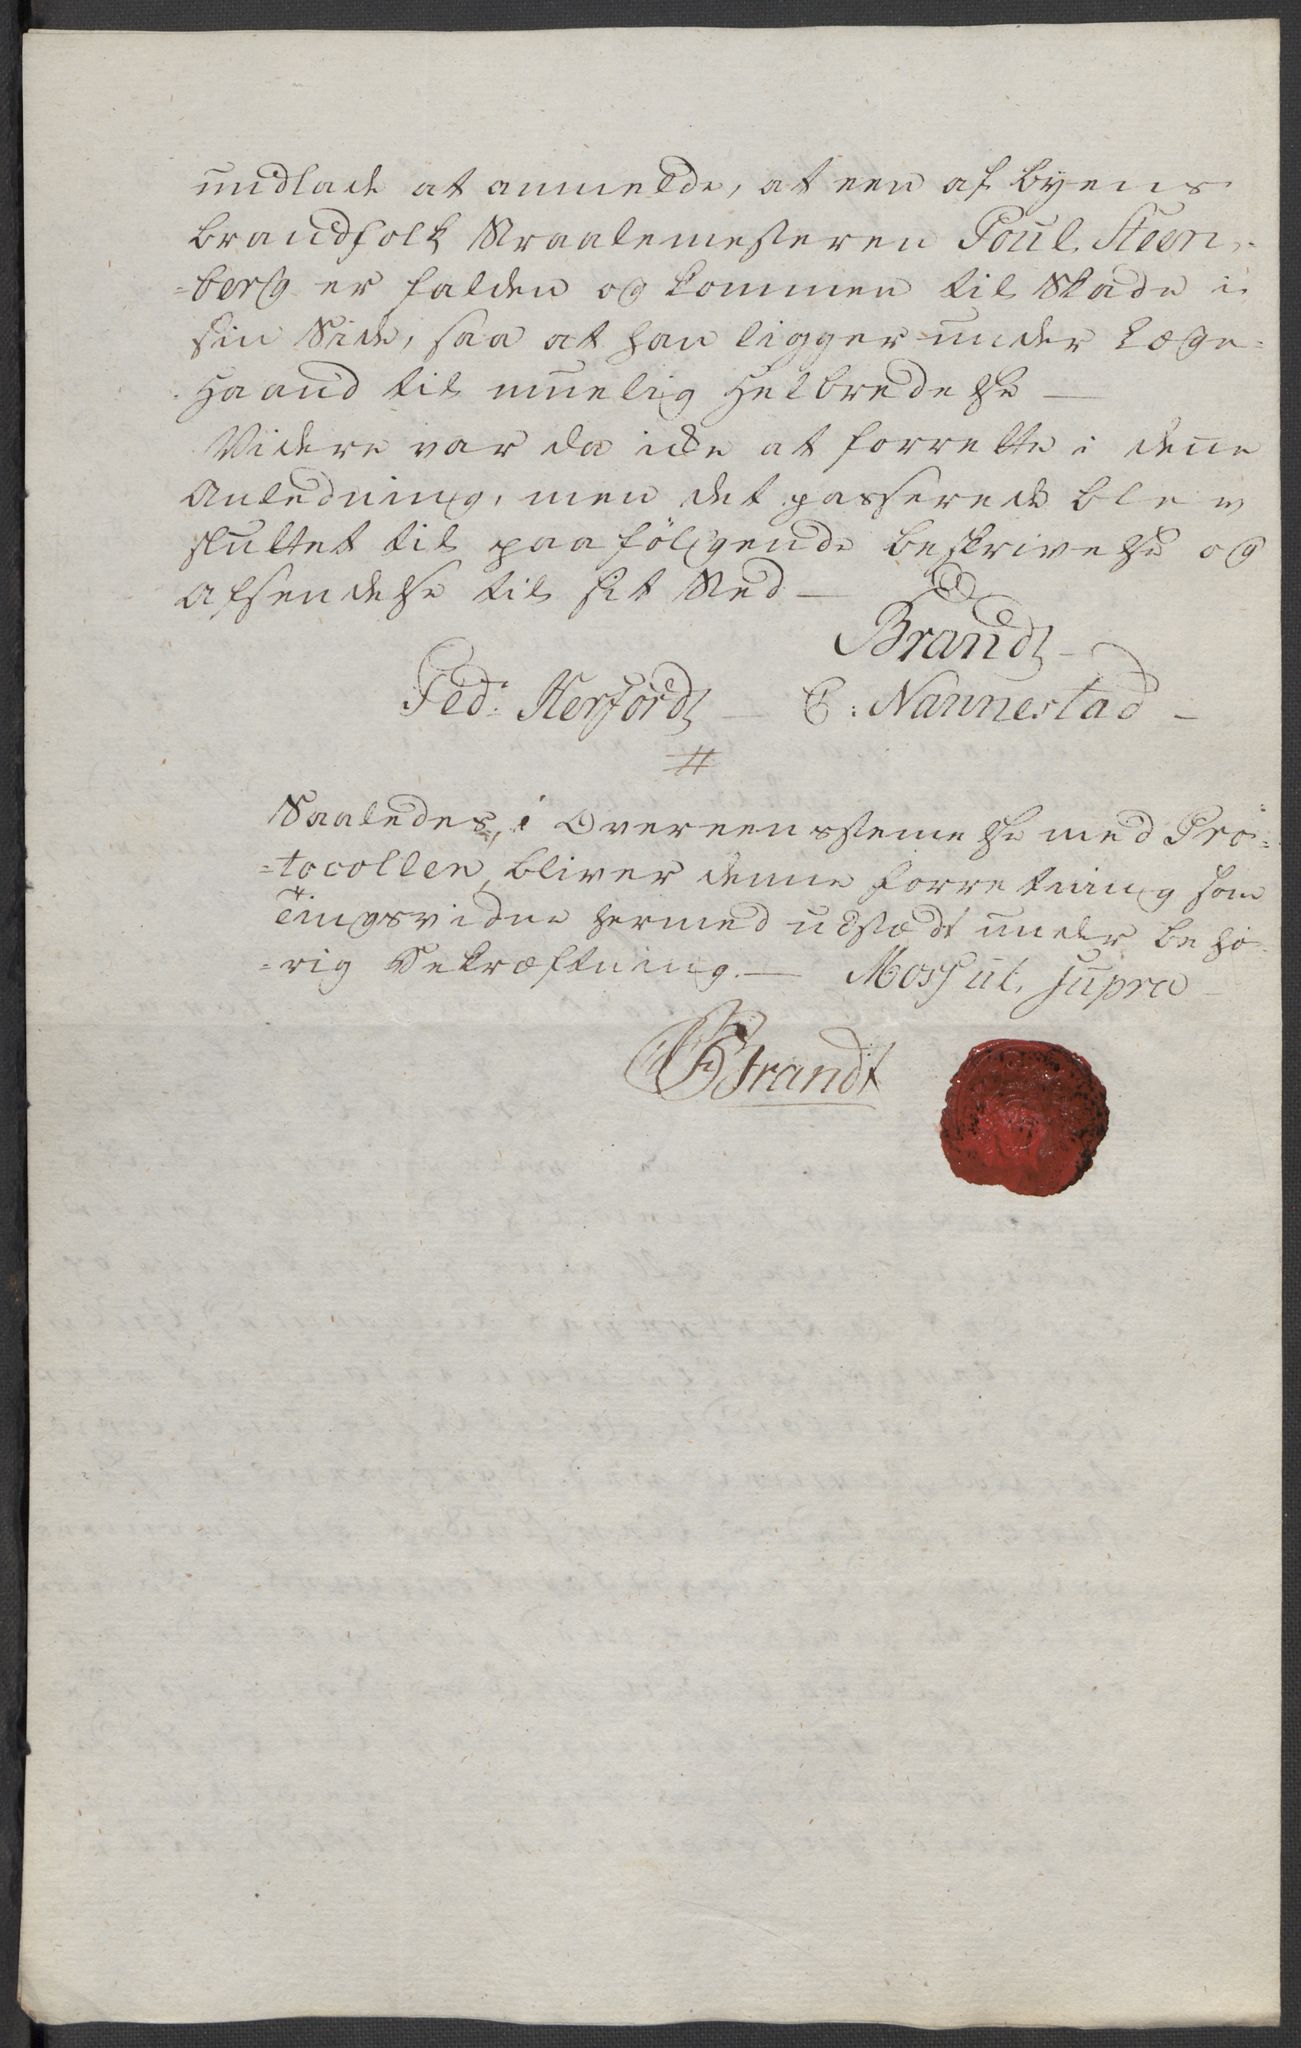 undlade at anmelde, at een af Byens
Brandfolk Straalemesteren Poul Steen-
=berg er falden og kommen til Skade i
sin Side, saa at han ligger under Læge=
Haand til muelig Helbredelse —
Videre var da icke at forrette i denne
Anledning, men det passerede blev
sluttet til paafølgende beskrivelse og
Afsendelse til sit Sted —
Brandt —
Fed: Herfordt — C: Nannestad —
#
Saaledes, i Overeensstemmelse med Pro-
=tocollen, bliver denne forretning som
Tingsvidne hermed udstædt under behø-
=rig Bekræftning. — Moss ut supra —
Brandt